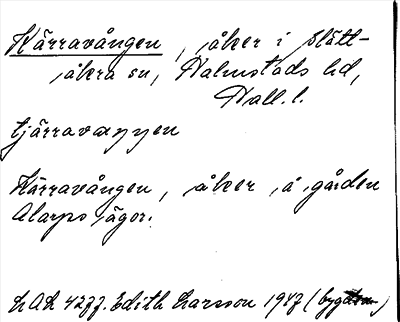 Kärravången, åker i Slätt-
åkra sn, Halmstads hd,
Hall. l.
tjärravaŋŋen
Kärravången, åker å gården
Alarps ägor.
LAL 4277. Edith Larsson 1947 (bygdem)